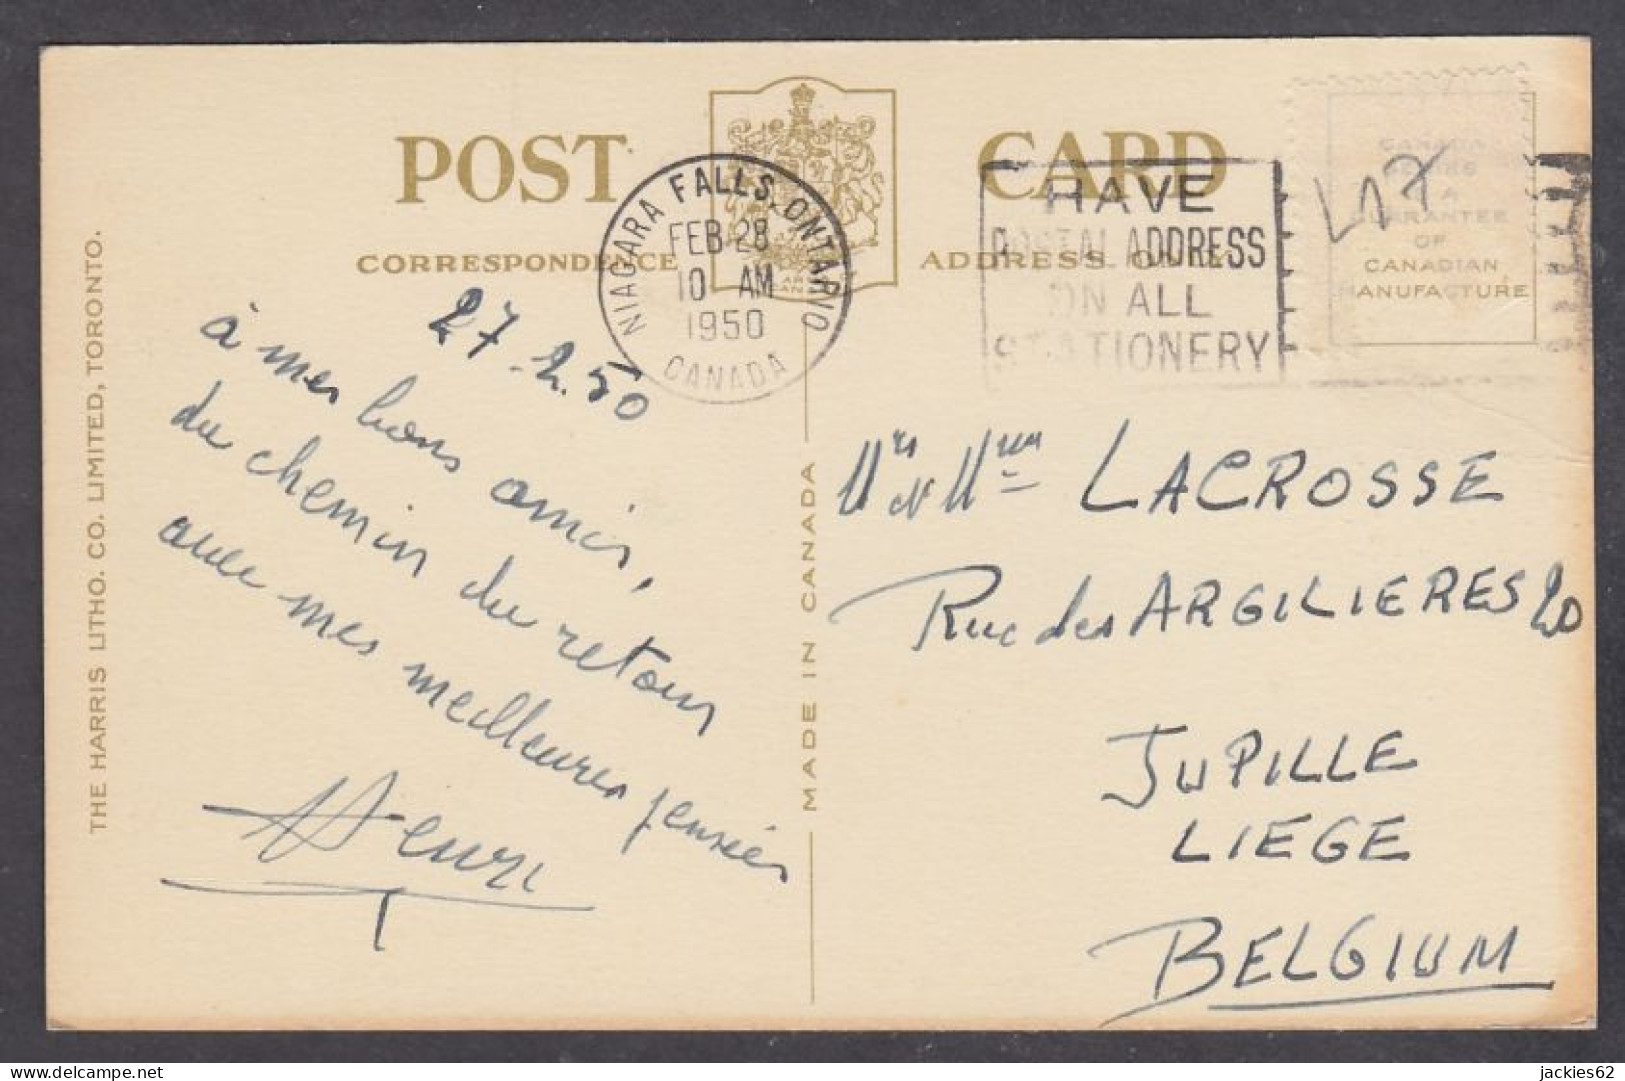 POST CARD
CORRESPONDENCE
ADDRESS ONLY
NIAGARA FALLS, ONTARIO
FEB 28
10 AM
1950
CANADA
HAVE
POSTAL ADDRESS
ON ALL
STATIONERY
CANADA
A
GUARANTEE
OF
CANADIAN
MANUFACTURE
THE HARRIS LITHO. CO. LIMITED, TORONTO.
MADE IN CANADA
27.2.50
à mes bons amis,
du chemin du retour
avec mes meilleures pensées
Henri
Mrs Mme LACROSSE
Rue des ARGILIERES 20
JUPILLE
LIEGE
BELGIUM
jackies62